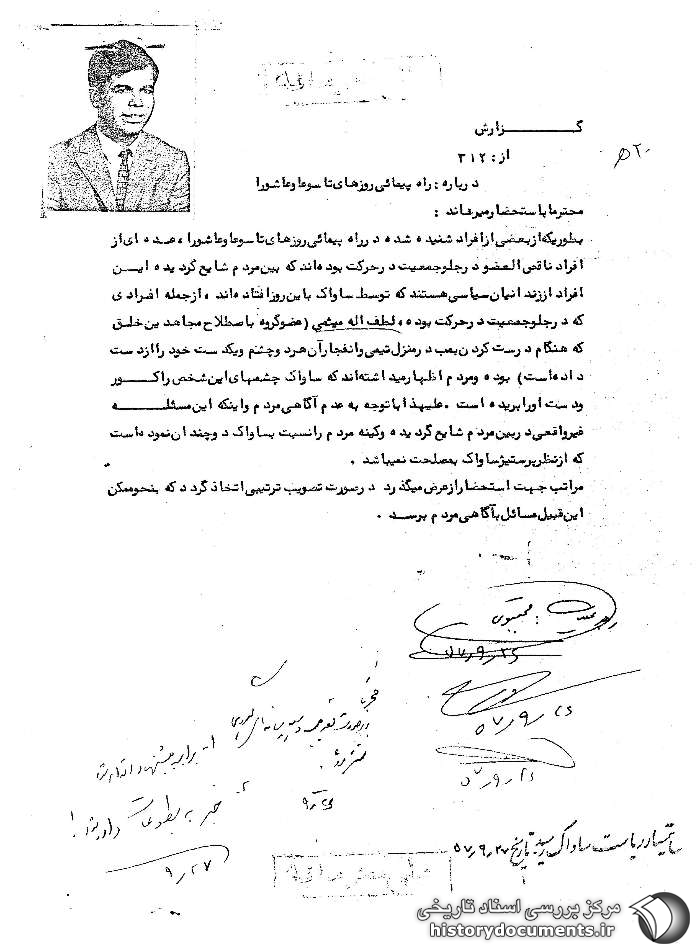 گـــــزارش
از : ۳۱۲
۲۰ ه
درباره : راه پیمائی روزهای تاسوعا و عاشورا
محترما باستحضار میرساند :
بطوریکه از بعضی از افراد شنیده شده در راه پیمائی روزهای تاسوعا و عاشورا ، عده ای از
افراد ناقص العضو در جلو جمعیت در حرکت بوده اند که بین مردم شایع گردیده ایـن
افراد از زندانیان سیاسی هستند که توسط ساواک باین روز افتاده اند ، از جمله افرادی
که در جلو جمعیت در حرکت بوده ، لطف اله میثمی (عضو گروه باصطلاح مجاهدین خلق
که هنگام درست کردن بمب در منزل تیمی و انفجار آن هر دو چشم و یکدست خود را از دست
داده است) بوده و مردم اظهار میداشته اند که ساواک چشمهای این شخص را کـــور
و دست او را بریده است . علیهذا با توجه به عدم آگاهی مردم و اینکه این مسئلـــه
غیر واقعی در بین مردم شایع گردیده و کینه مردم را نسبت بساواک دو چندان نموده است
که از نظر پرستیژ ساواک بمصلحت نمیباشد .
مراتب جهت استحضار از عرض میگذرد در صورت تصویب ترتیبی اتخاذ گردد که بنحو ممکن
این قبیل مسائل بآگاهی مردم برسـد .
۵۷/۹/۲۶
۵۷/۹/۲۶
۵۷/۹/۲۶
۹/۲۶
۱- برابر پیشنهاد اقدام
۲- خبر به مطبوعات داده شود !
۹/۲۷
ساواک رسید بتاریخ ۵۷/۹/۲۷
خیلی محرمانه
مرکز بررسی اسناد تاریخی
historydocuments.ir